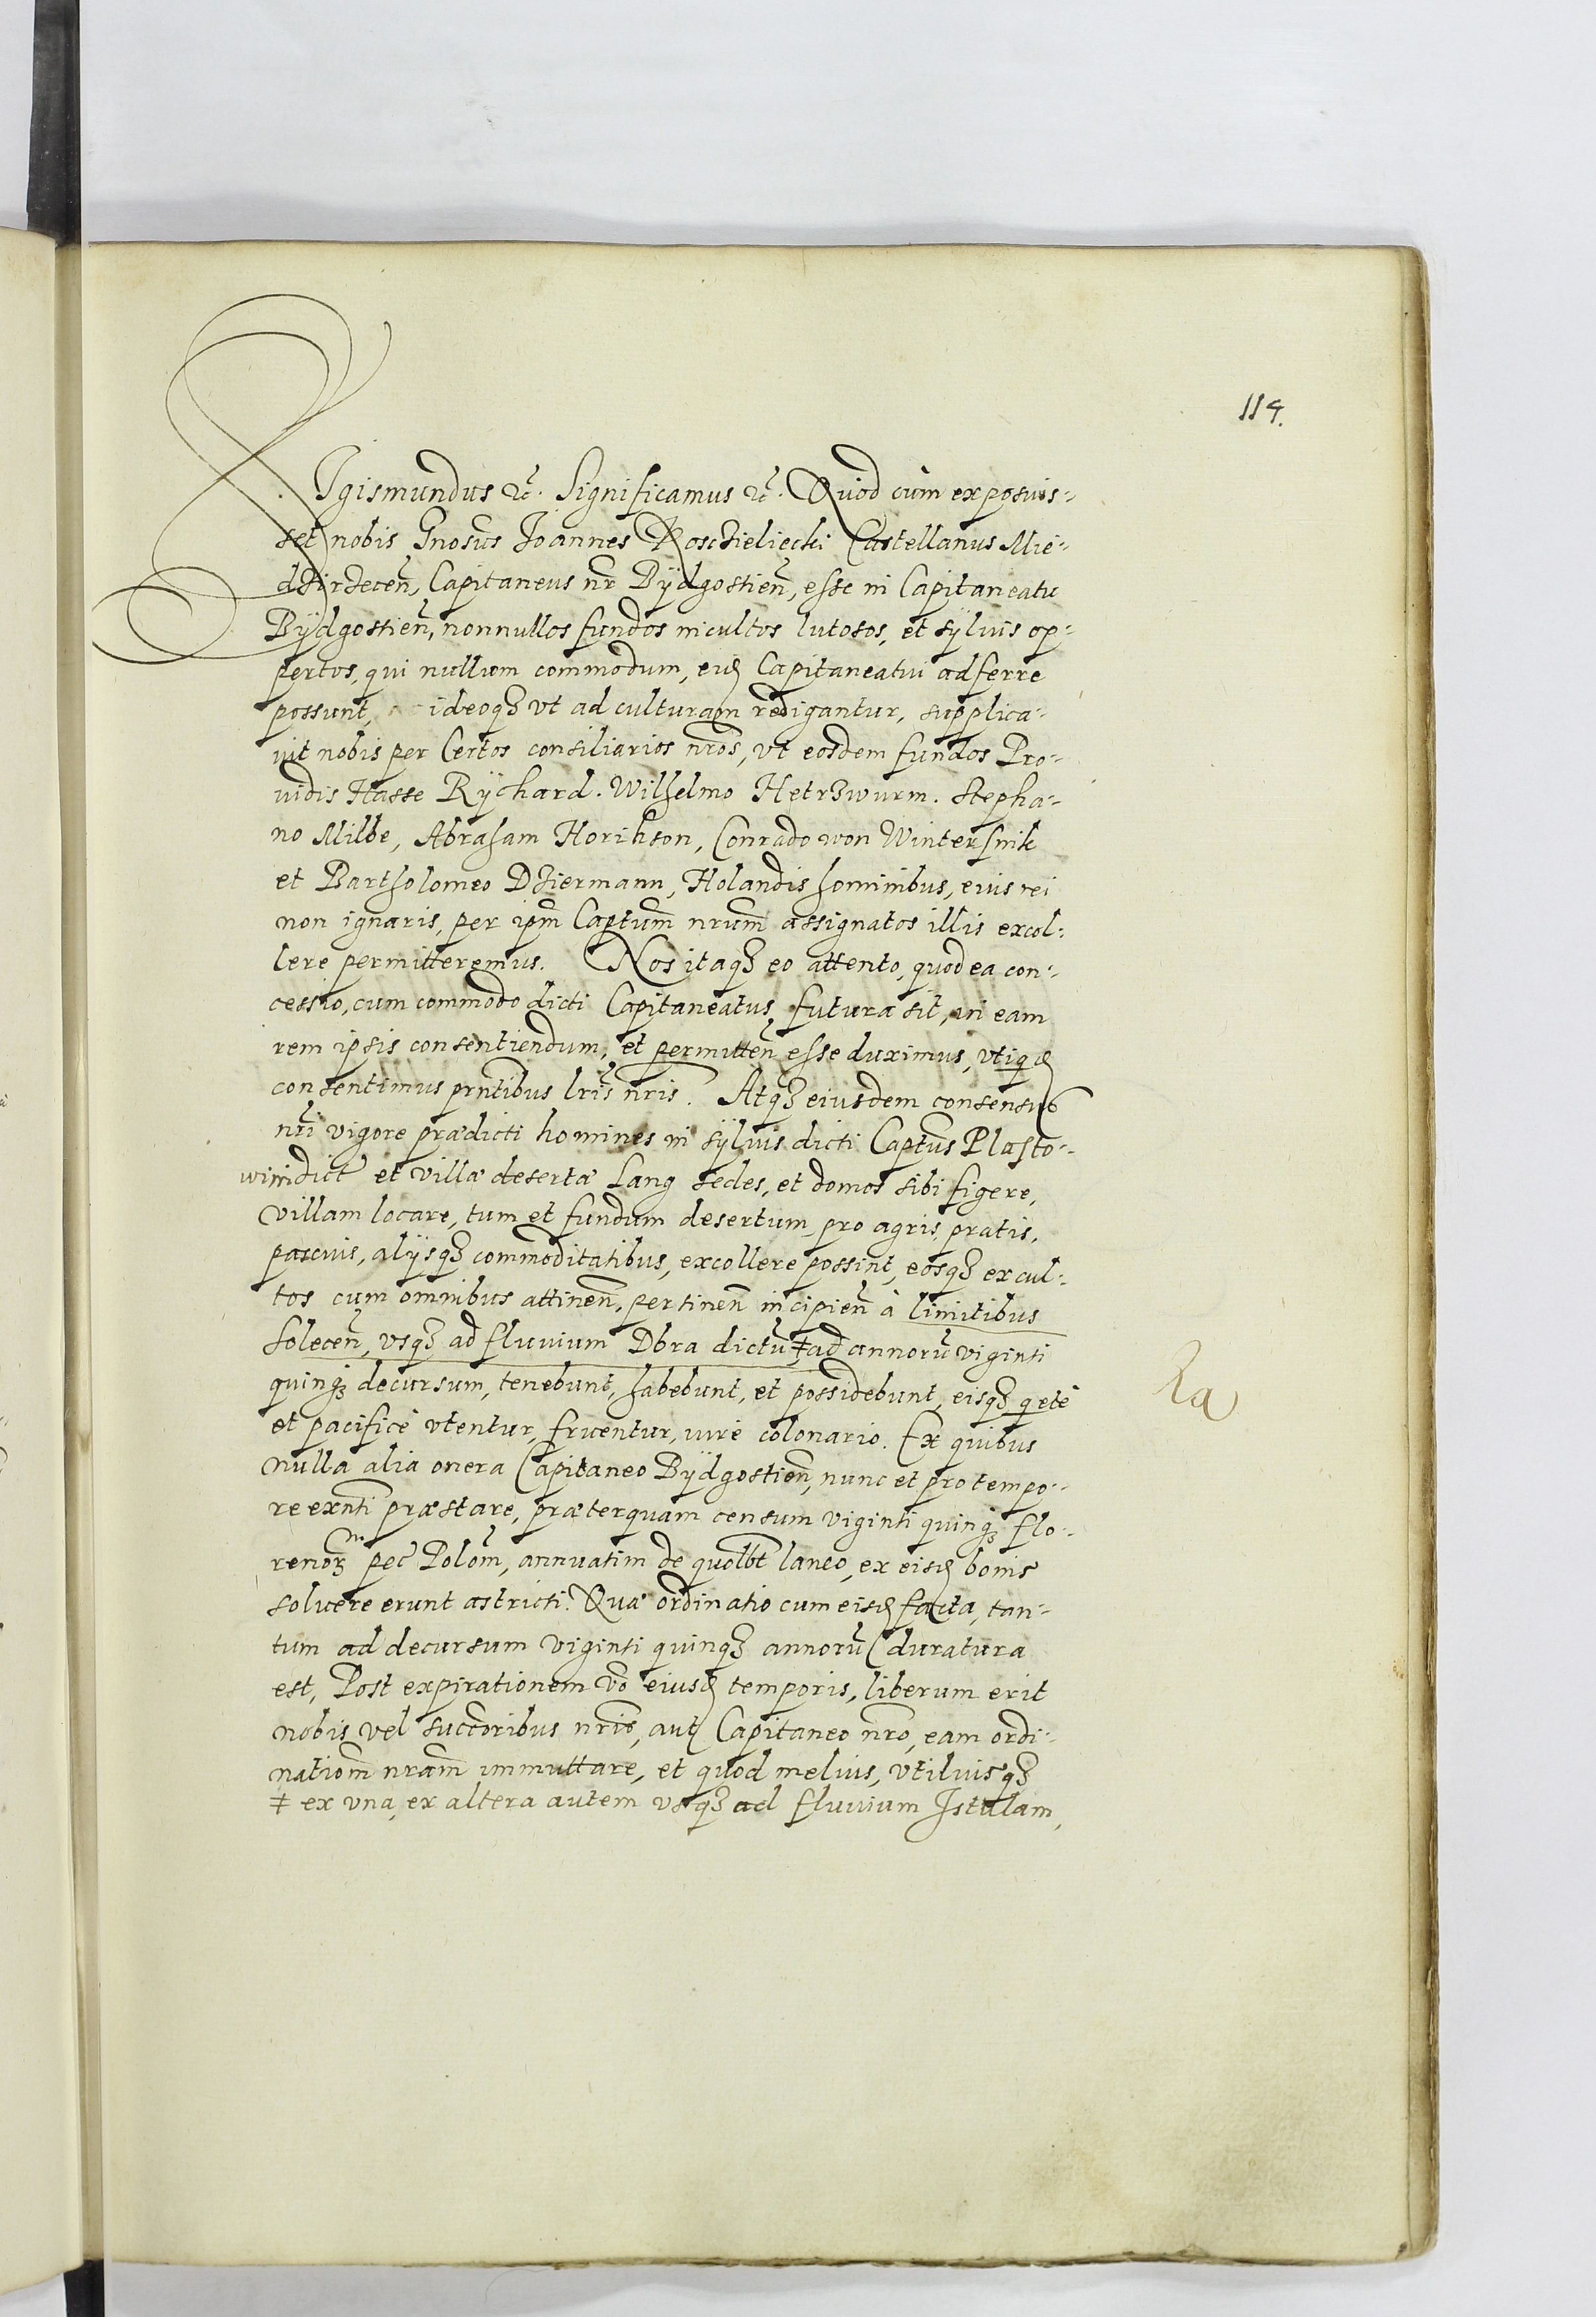 114.
Sigismundus etc̃. Significamus etc̃. Quod cùm exposuis-
set nobis Gnosus Joannes Kosczieliecki Castellanus Mie-
dzirzecen̄, Capitaneus nr̄ Bÿdgostien̄, esse in Capitaneatu
Bÿdgostien̄, nonnullos fundos incultos lutosos, et sÿluis op-
pertos, qui nullum commodum, eid Capitaneatui adferre
possunt, ideoqȝ vt ad culturam redigantur, supplica-
uit nobis per Certos consiliarios nr̄os, vt eosdem fundos Pro-
uidis Hasse Rÿchard. Wilhelmo Hetrzwurm. Stepha-
no Milbe, Abraham Horikson, Conrado won Wintersnik
et Bartholomeo Dziermann, Holandis hominibus, eius rei
non ignaris, per ipm̄ Captum̄ nrum̄ assignatos illis excol-
lere permitteremus. Nos itaqȝ eo attento, quod ea con-
cessio, cum commodo dicti Capitaneatus, futura sit, in eam
rem ipsis consentiendum, et permitten̄ esse duximus, vtiqȝ
consentimus prn̄tibus lr̄is nr̄is. Atqȝ eiusdem consensus
nr̄i vigore prædicti homines in sÿluis dicti Captus̄ Plasto-
wini dict̄ et villæ desertæ Lang sedes, et domos sibi figere,
villam locare, tum et fundum desertum, pro agris, pratis,
pascuis, alijsqȝ commoditatibus, excollere possint, eosqȝ excul-
tos cum omnibus attinen̄, pertinen̄ incipien̄ à limitibus
Solecen̄, vsqȝ ad fluuium Dbra dictū ‡ ad annorū viginti
quinqȝ decursum, tenebunt, habebunt, et possidebunt, eisqȝ qetè
et pacificè vtentur, fruentur, iure colonario. Ex quibus
nulla alia onera Capitaneo Bÿdgostien̄, nunc et pro tempo-
re exn̄ti præstare, præterquam censum viginti quinqȝ flo-
renorȝ pec̄ Polon̄m, annuatim de quolbt̄ laneo, ex eisd bonis
soluere erunt astricti. Quæ ordinatio cum eisd facta, tan-
tum ad decursum viginti quinqȝ annorū duratura
est, Post expirationem vo̅ eiusd temporis, liberum erit
nobis vel succ̄oribus nr̄is, aut Capitaneo nr̄o, eam ordi-
nationm̄ nram̄ immuttare, et quod melius, vtiliusqȝ
‡ ex vna, ex altera autem vsqȝ ad fluuium Istulam,
Ra